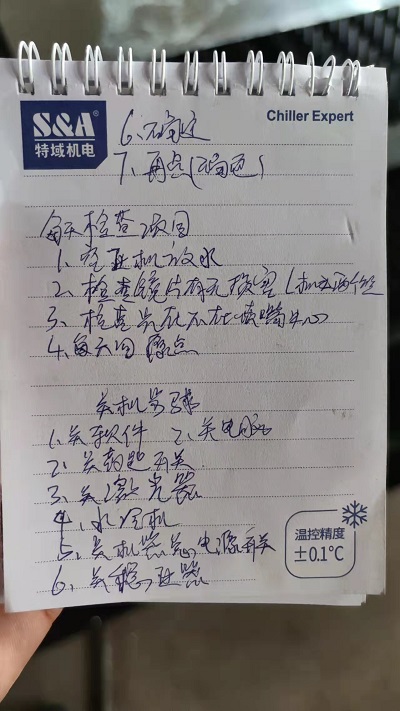 S&A®
特域机电
Chiller Expert
6、不确定
7、再点(不确定)
每天检查项目
1、空压机放水
2、检查镜片有无损害(
3、检查光在不在喷嘴中心
4、每天回原点
关机步骤
1、关软件 2、关电脑
2、关钥匙开关
3、关激光器
4、水冷机
5、关机器总电源开关
6、关稳压器
温控精度
±0.1℃